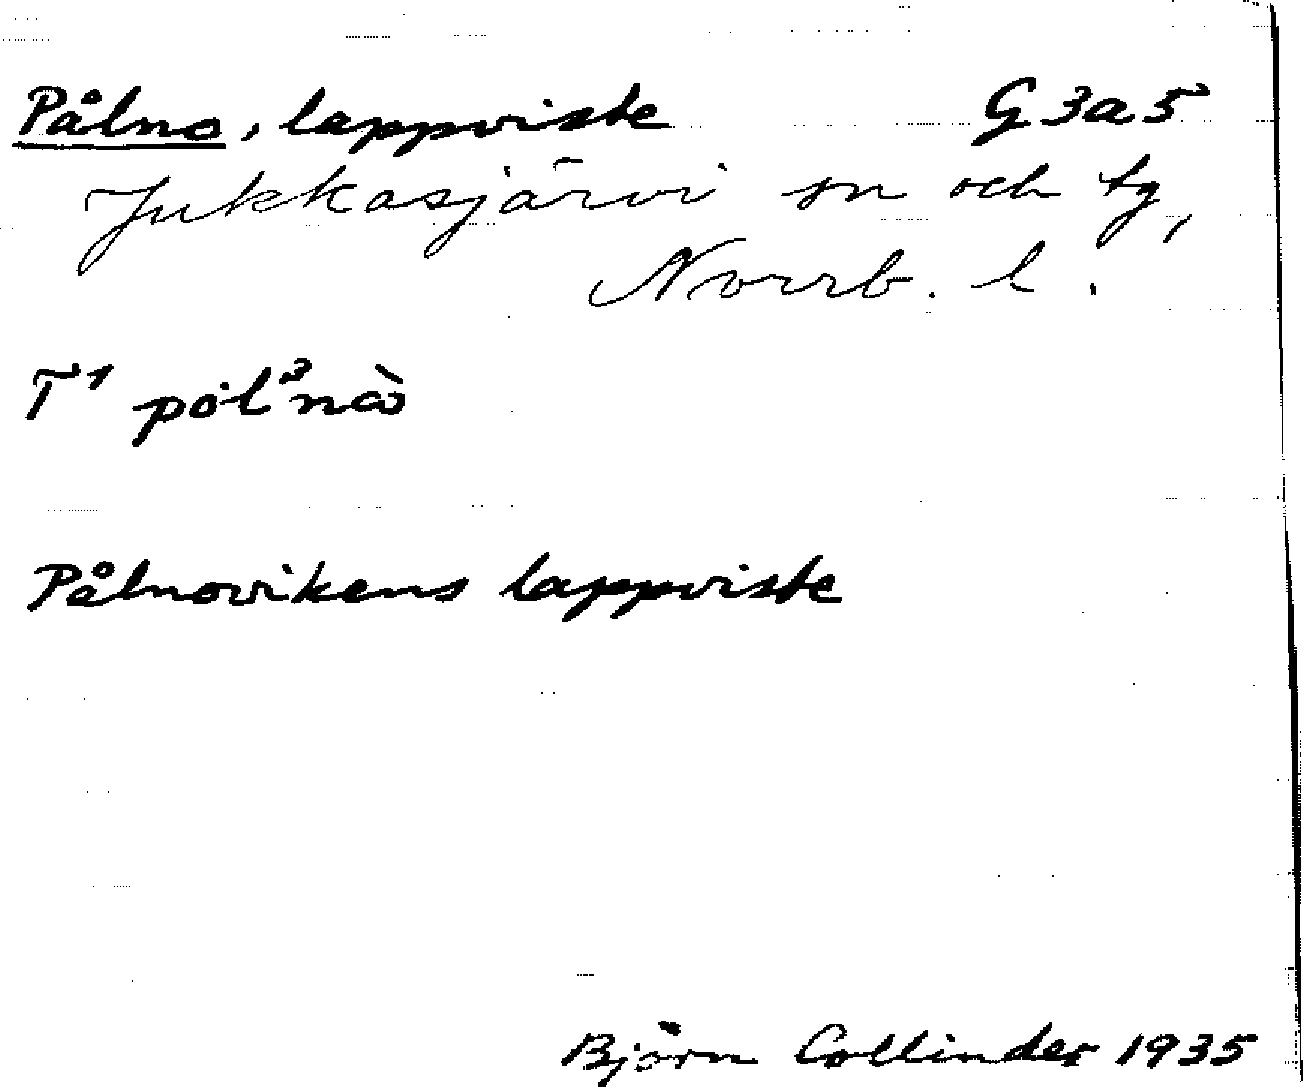 Pålno, lappviste G 3 a 5
Jukkasjärvi sn och tg,
Norrb. l.
T¹ pȯl³nɑ̀
Pålnovikens lappviste
Björn Collinder 1935